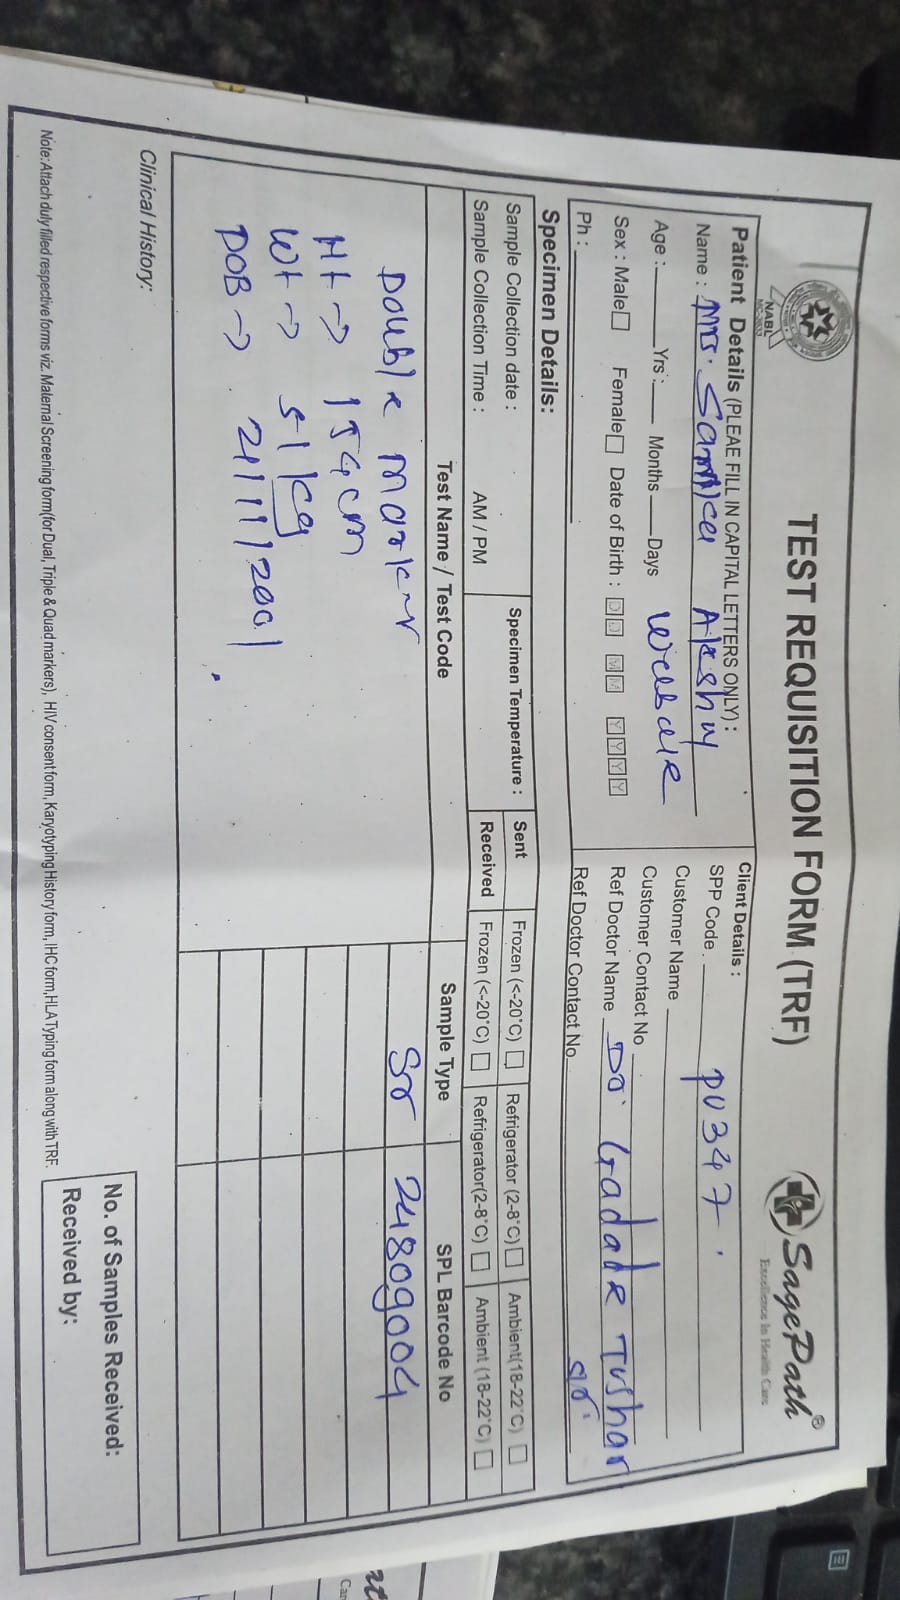 TEST REQUISITION FORM (TRF)
SagePath®
Excellence In Health Care
NABL
Patient Details (PLEAE FILL IN CAPITAL LETTERS ONLY) :
Name : Mrs. Akshay
Age : Yrs : Months Days
Sex : Male Female Date of Birth : D D M M Y Y Y Y
Ph :
Client Details :
SPP Code . PU347.
Customer Name
Customer Contact No
Ref Doctor Name Dr. Gadade Tushar
Ref Doctor Contact No. sr.
Specimen Details:
Sample Collection date : Specimen Temperature : Sent Frozen (<-20°C) Refrigerator (2-8°C) Ambient(18-22°C)
Sample Collection Time : AM / PM Received Frozen (<-20°C) Refrigerator(2-8°C) Ambient (18-22°C)
Test Name / Test Code Sample Type SPL Barcode No
Double marker Sr 24809004
Ht → 154cm
Wt → 51 kg
DOB → 21/11/2001.
Clinical History:
No. of Samples Received:
Received by:
Note: Attach duly filled respective forms viz. Maternal Screening form(for Dual, Triple & Quad markers), HIV consent form, Karyotyping History form, IHC form,HLA Typing form along with TRF.